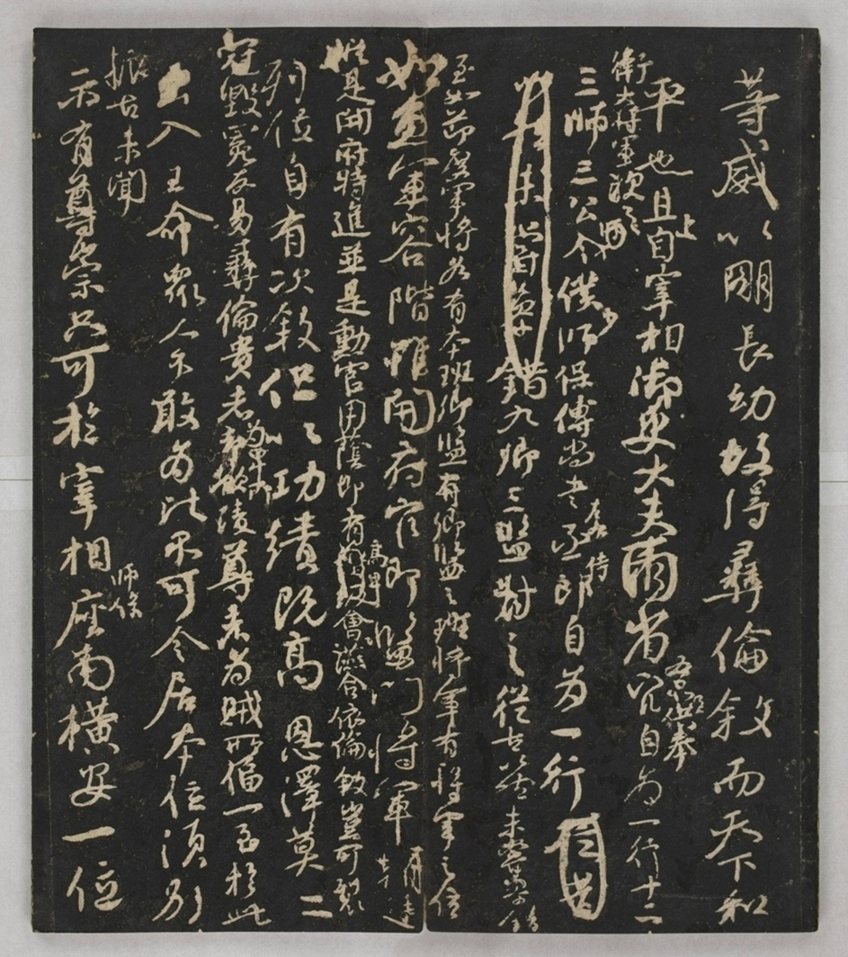 等威以明長幼故得彝倫敘而天下和
平也且上自宰相御史大夫兩省五品以上供奉官自為一行十二
衛大將軍次之
三師三公令僕少師保傅尚書左右丞侍郎自為一行
九卿三監對之從古以然未嘗參錯
至如節度軍將各有本班卿監有卿監之班將軍有將軍之位
如魚軍容階雖開府官即監門將軍朝廷
縱是開府特進並是勳官用蔭即有高卑會讌合依倫敘豈可裂
列位自有次敘但以功績既高恩澤莫二
冠毀冕反易彝倫貴者為卑所凌尊者為賊所偪一至於此
出入王命眾人不敢為比不可令居本位須別
振古未聞
示有尊崇只可於宰相師保座南橫安一位